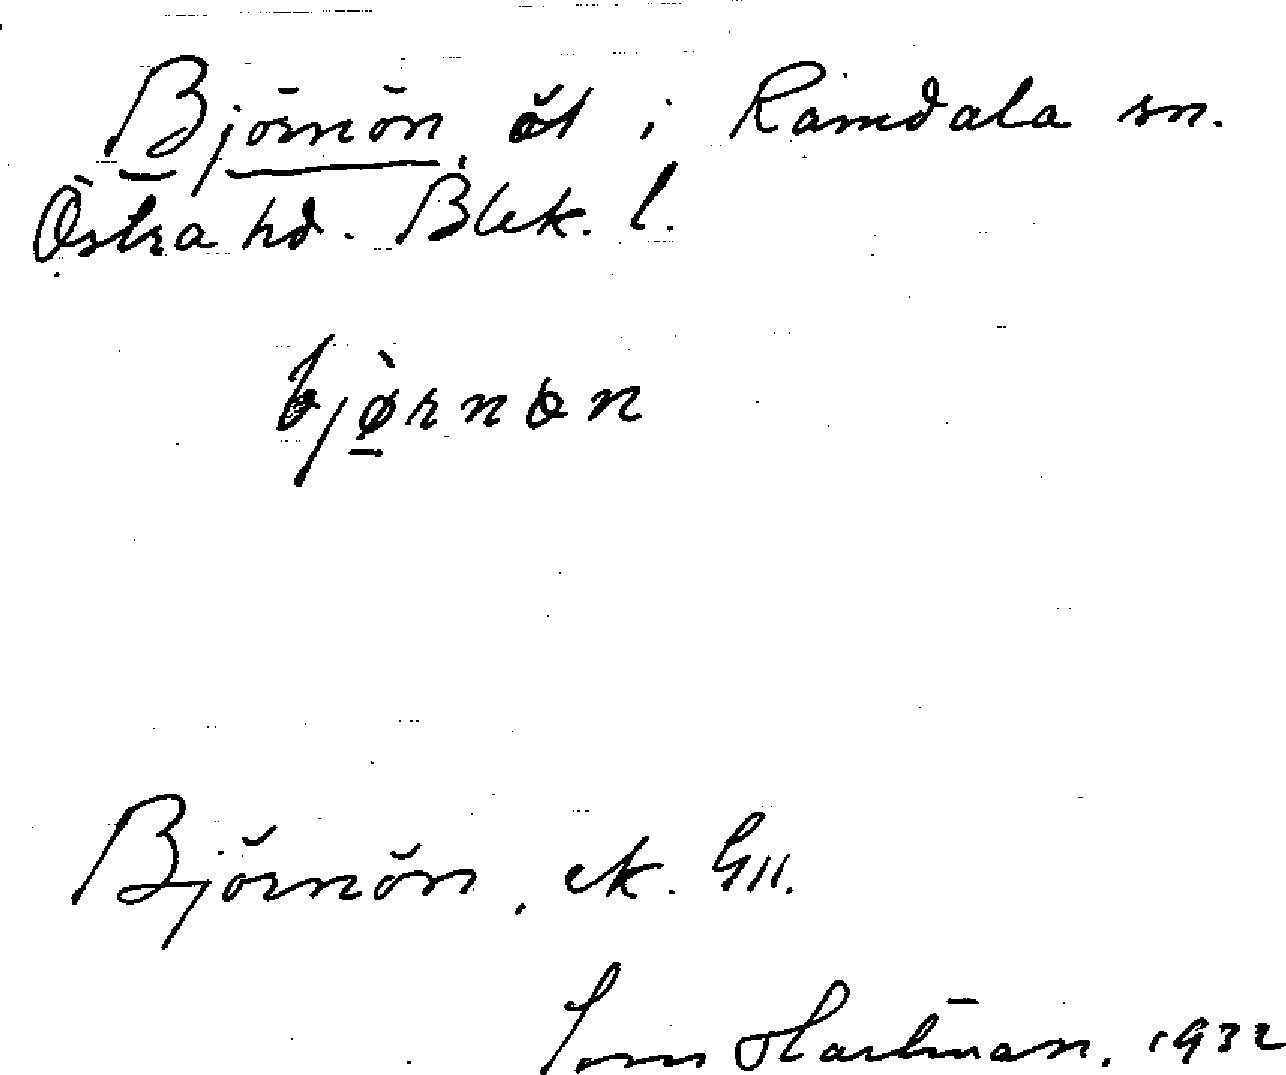 Björnön, öl i Ramdala sn.
Östra hd. Blek. l.
bjørnøn
Björnön, ek. G11.
Tom Hartman. 1932